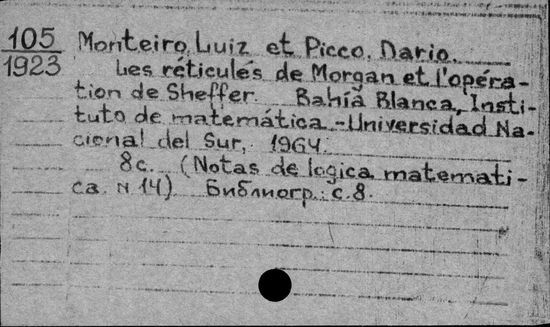 105
1923
Monteiro, Luiz et Picco, Dario.
Les réticulés de Morgan et l'opéra-
tion de Sheffer. Bahía Blanca, Insti-
tuto de matemática - Universidad Na-
cional del Sur, 1964.
8c. (Notas de logica matemati-
ca. N 14) Библиогр.: с. 8.